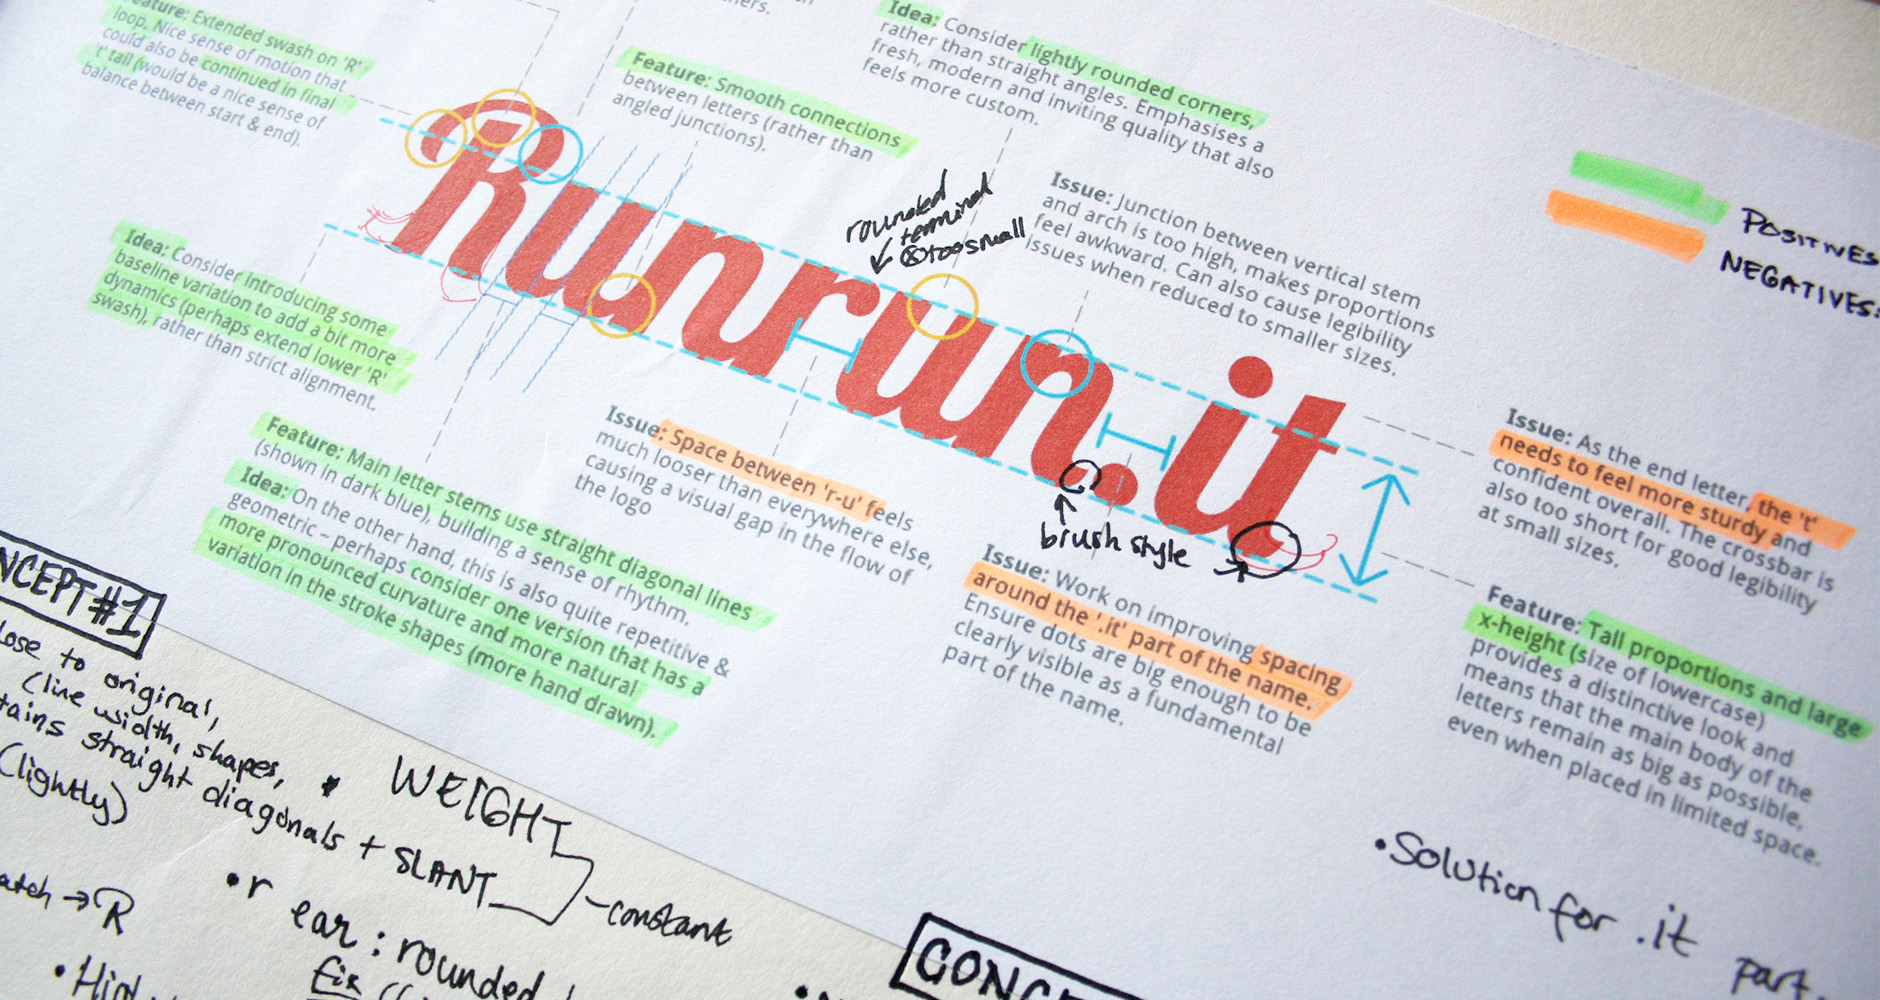 Feature: Extended swash on 'R'
loop. Nice sense of motion that
could also be continued in final
't' tail (would be a nice sense of
balance between start & end).
Feature: Smooth connections
between letters (rather than
angled junctions).
Idea: Consider lightly rounded corners,
rather than straight angles. Emphasises a
fresh, modern and inviting quality that also
feels more custom.
rounded
terminal
too small
Issue: Junction between vertical stem
and arch is too high, makes proportions
feel awkward. Can also cause legibility
issues when reduced to smaller sizes.
POSITIVES
NEGATIVES:
Runrun.it
Idea: Consider introducing some
baseline variation to add a bit more
dynamics (perhaps extend lower 'R'
swash), rather than strict alignment.
Feature: Main letter stems use straight diagonal lines
(shown in dark blue), building a sense of rhythm.
Idea: On the other hand, this is also quite repetitive &
geometric – perhaps consider one version that has a
more pronounced curvature and more natural
variation in the stroke shapes (more hand drawn).
Issue: Space between 'r-u' feels
much looser than everywhere else,
causing a visual gap in the flow of
the logo
brush style
Issue: Work on improving spacing
around the '.it' part of the name.
Ensure dots are big enough to be
clearly visible as a fundamental
part of the name.
Issue: As the end letter, the 't'
needs to feel more sturdy and
confident overall. The crossbar is
also too short for good legibility
at small sizes.
Feature: Tall proportions and large
x-height (size of lowercase)
provides a distinctive look and
means that the main body of the
letters remain as big as possible,
even when placed in limited space.
NCEPT #1
lose to original,
(line width, shapes,
tains straight diagonals + SLANT
(lightly)
WEIGHT
constant
atch → R
• r ear: rounded
fix
• Solution for .it part.
CONC